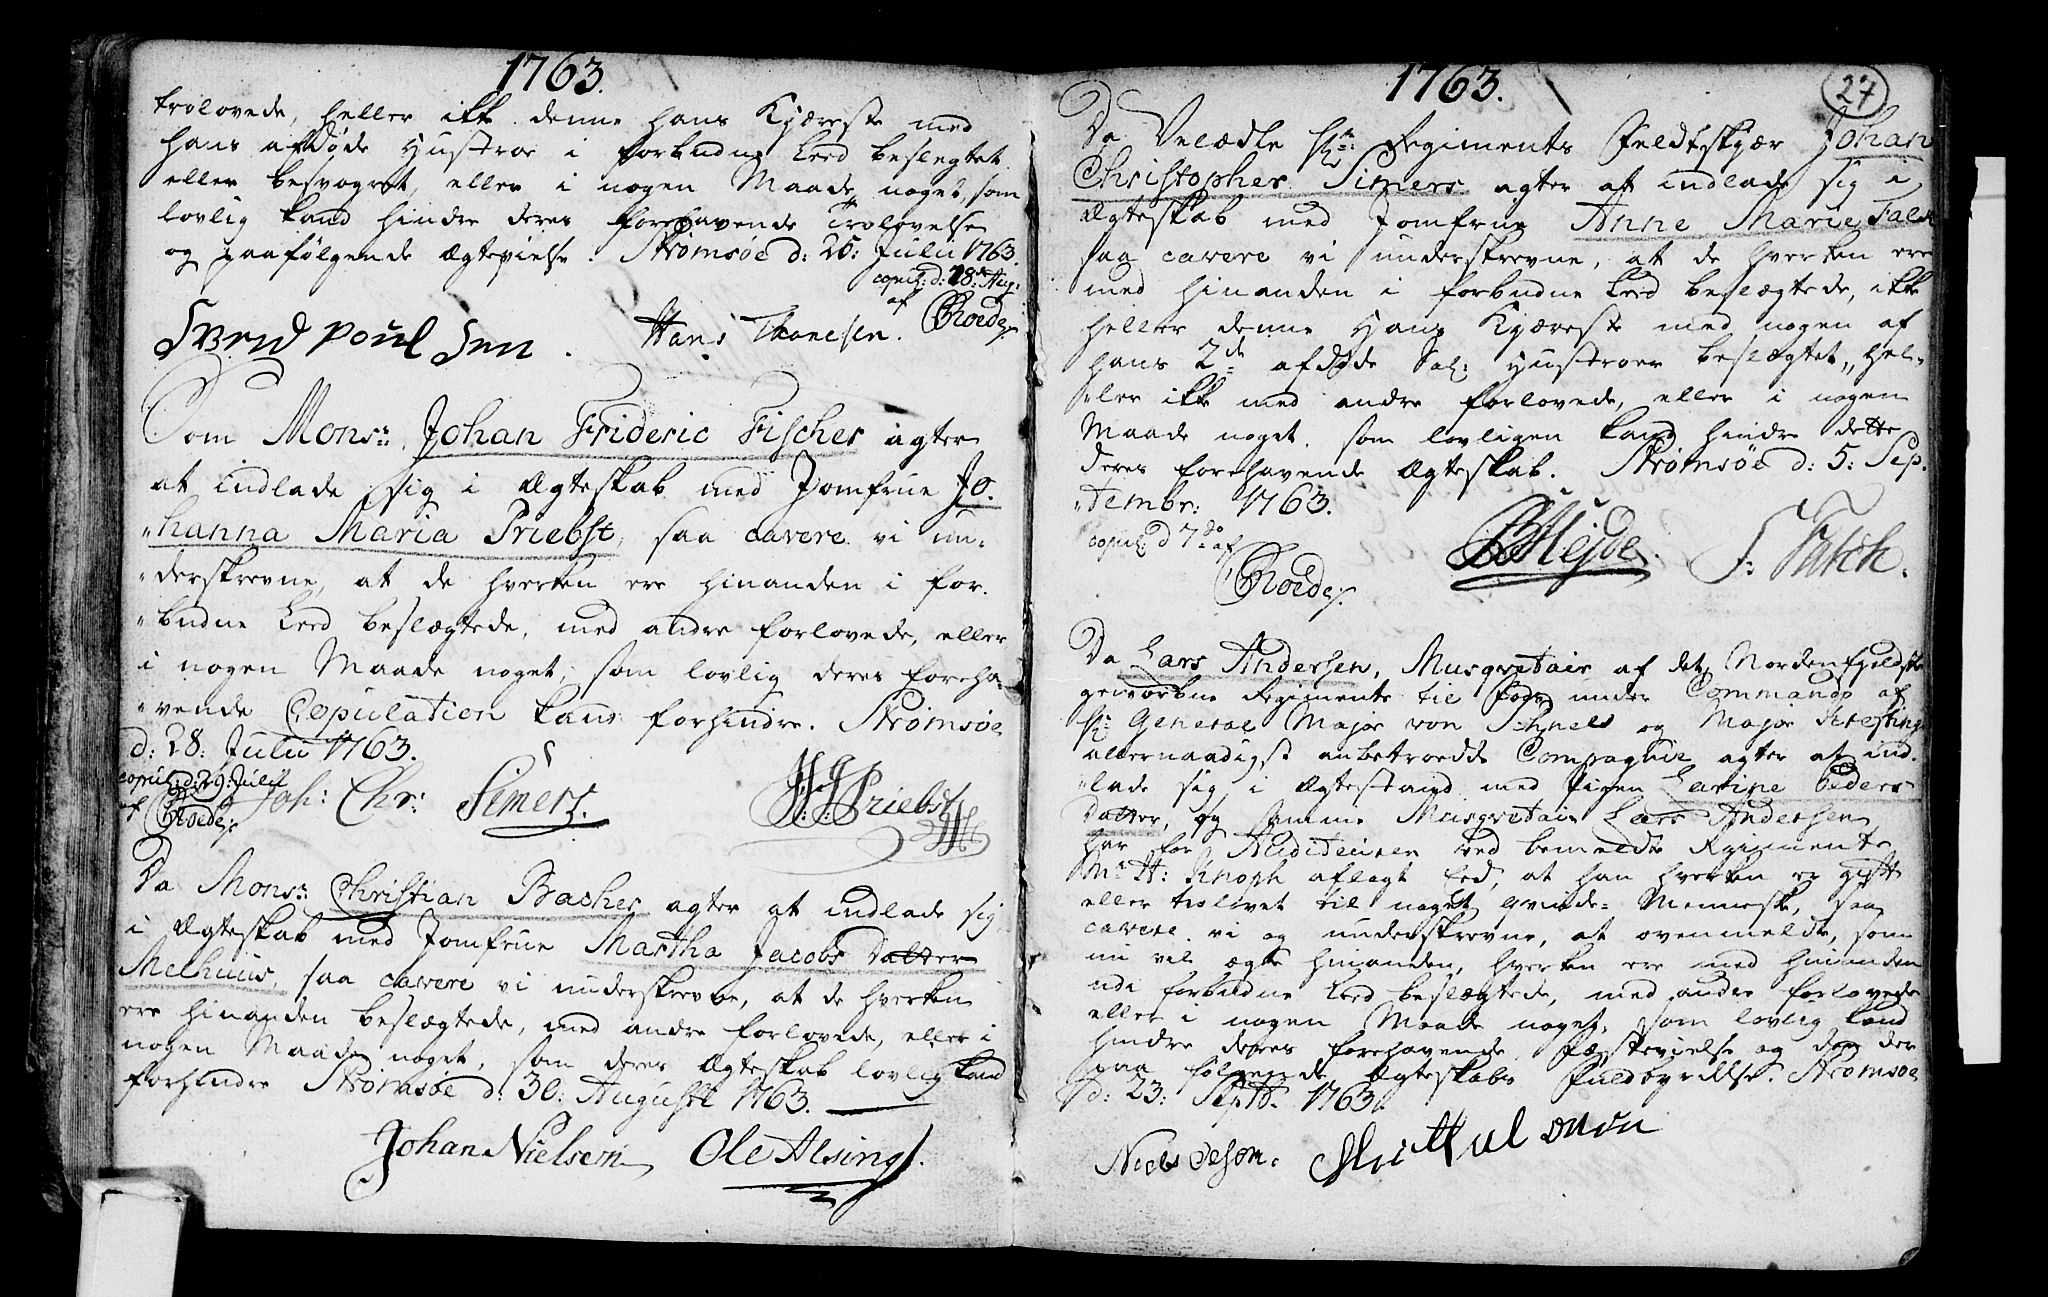 1763.
trolovede, heller ikke denne hans Kjæreste med
hans afdøde Hustroe i forbudne Leed beslegtet
eller besvogret, eller i nogen Maade noget, som
lovlig kand hindre deres forehavende Trolovelse
og paafølgende Ægtevielse. Strømsøe d: 26: Julii 1763.
copul: d: 18de Aug:
af CRoede/.
Svend Poul Sen. Hans Thonesen.
Som Mons:r Johan Frideric Fischer agter
at indlade sig i Ægteskab med Jomfrue Jo-
"hanna Maria Priebst, saa cavere vi un-
"derskrevne, at de hverken ere hinanden i for-
"budne Leed beslægtede, med andre forlovede, eller
i nogen Maade noget, som lovlig deres foreha-
"vende Copulation kans forhindre. Strømsøe
d: 28: Julii 1763.
copul: d: 29: Julii
af CRoede/.
Joh: Chr: Simers. H: J: Priebst
Da Mons:r Christian Bacher agter at indlade sig
i Ægteskab med Jomfrue Martha Jacobs Datter
Melhuus, saa cavere vi underskrevne, at de hverken
ere hinanden beslægtede, med andre forlovede, eller i
nogen Maade noget, som deres Ægteskab lovlig kand
forhindre Strømsøe d: 30: Augusti 1763.
Johan Nielsen Ole Alsing.
1763.
27
Da Velædle Hr: Regiments Feldtskjær Johan
Christopher Simers agter at indlade sig i
Ægteskab med Jomfrue Anne Marie Falch
saa cavere vi underskrevne, at de hverken ere
med hinanden i forbudne Leed beslægtede, ikke
heller denne Hans Kjæreste med nogen af
hans 2de afdøde Sal: Hustroer beslægtet, hel-
"ler ikke med andre forlovede, eller i nogen
Maade noget, som lovligen kand hindre dette
deres forehavende Ægteskab. Strømsøe d: 5: Sep-
"tembr: 1763.
copul: d 7de do af
CRoede/.
B Hejde. F: Falch.
Da Lars Andersen, Musqvetair af det Nordenfieldske
geworbne Regimente til Fods under Commando af
Hr: General Major von Schnels og Major
allernaadigst anbetroedde Compagnie agter at ind-
"lade sig i Ægtestand med Pigen Larine Peders
Datter, og samme Musqvetair Lars Andersen
har for Auditeuren ved bemeldte Regimente
Mr H: Knoph aflagt Eed, at han hverken er gift
eller trolovet til noget qvinde-Menneske, saa
cavere vi og underskrevne, at ovenmeldte, som
nu vil ægte hinanden, hverken ere med hinanden
udi forbudne Leed beslægtede, med andre forlovede
eller i nogen Maade noget, som lovlig kand
hindre deres forehavende Fæstevielse og den der
paa følgende Ægteskabs Fuldbyrdelse. Strømsøe
d: 23: Septbr. 1763.
Niels Olson.